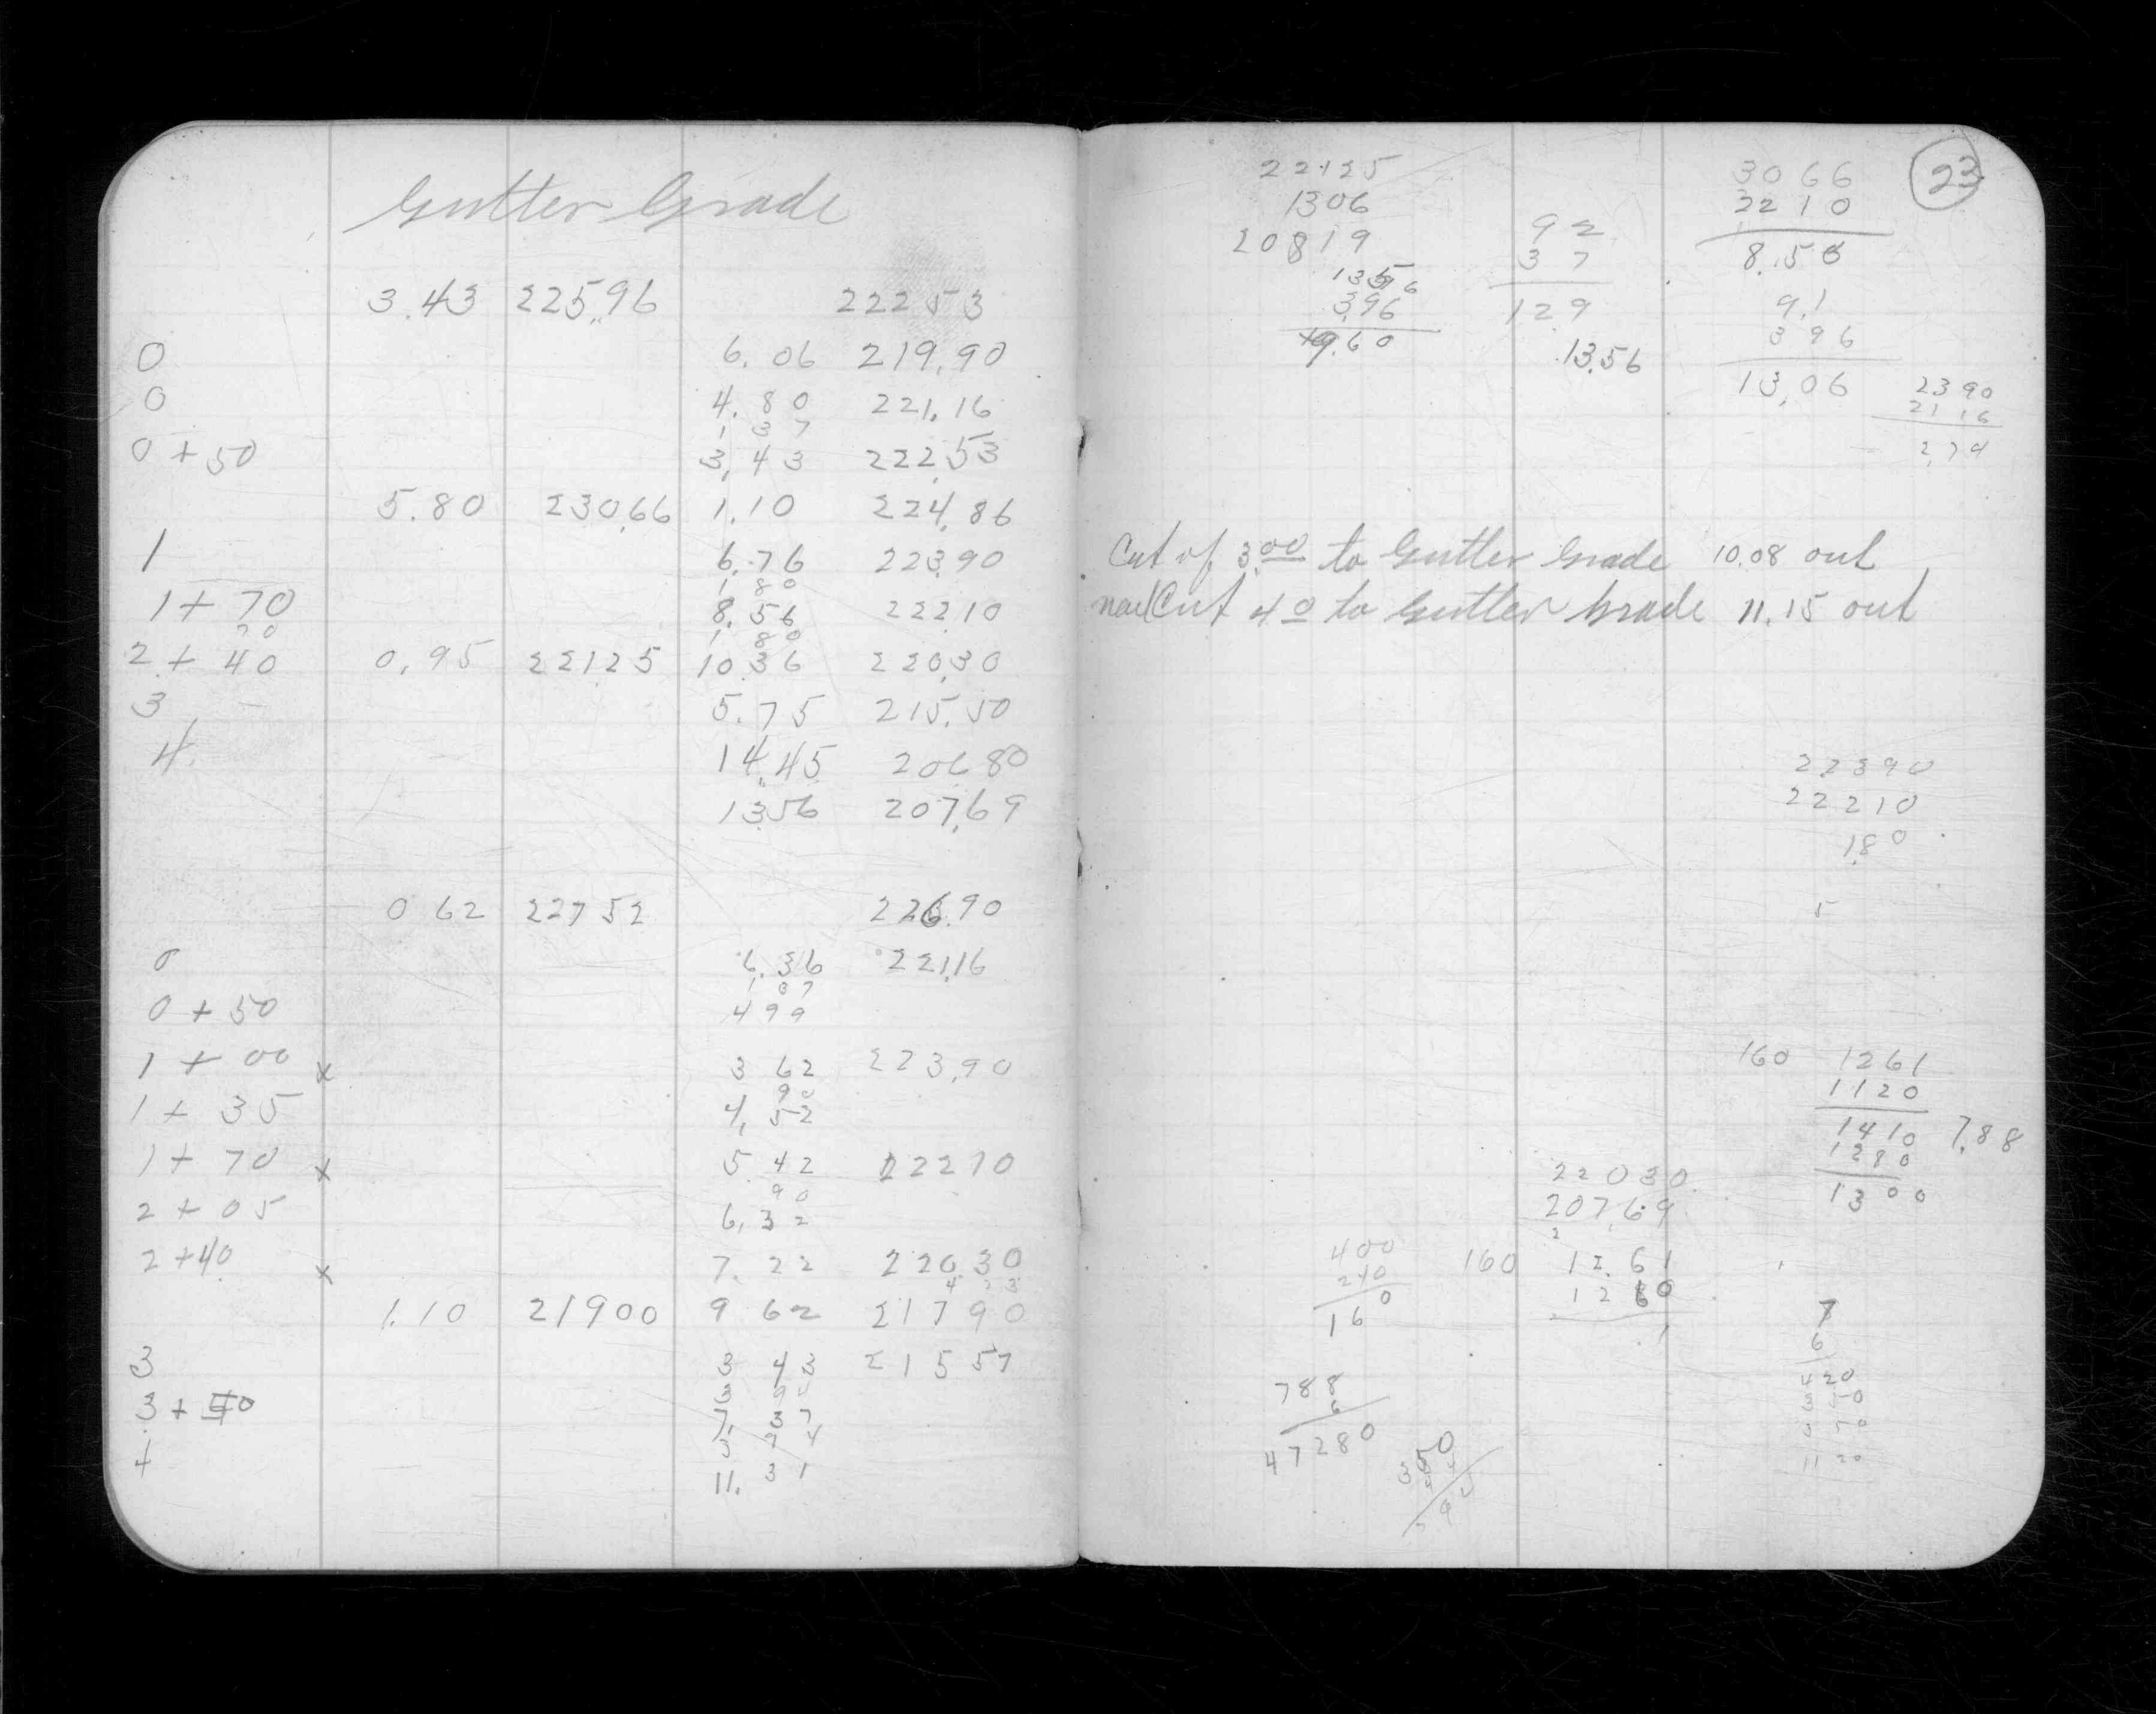 Gutter Grade
3.43 225.96 222 53
0 6.06 219.90
0 4.80 221.16
1 37
0 + 50 3.43 222.53
5.80 230.66 1.10 224.86
1 6.76 223.90
1 80
1 + 70 8.56 222.10
70 1 80
2 + 40 0.95 221.25 10.36 220.30
3 5.75 215.50
4 14.45 206 80
13.56 207.69
0 62 227 52 226.90
0 6.36 221.16
1 37
0 + 50 4 99
1 + 00 x 3 62 223.90
90
1 + 35 4.52
1 + 70 x 5 42 222 10
90
2 + 05 6.32
2 + 40 x 7.22 220.30
1.10 219 00 9 62 217 90
3 3 43 215 57
3 + 50 7.37
4 11.31
23
221.25
1306
20819
13.56
3.96
9.60
92
37
129
13.56
3066
2210
8.56
9.1
3 96
13.06
2390
2116
2.74
Cut of 3.00 to Gutter Grade 10.08 out
nail Cut 4 0 to Gutter Grade 11.15 out
22390
22210
1.80
5
160 1261
1120
1410 7.88
1280
1300
22030
207.69
160 12.61
400
240
160
788
6
47280
7
6
420
11 20